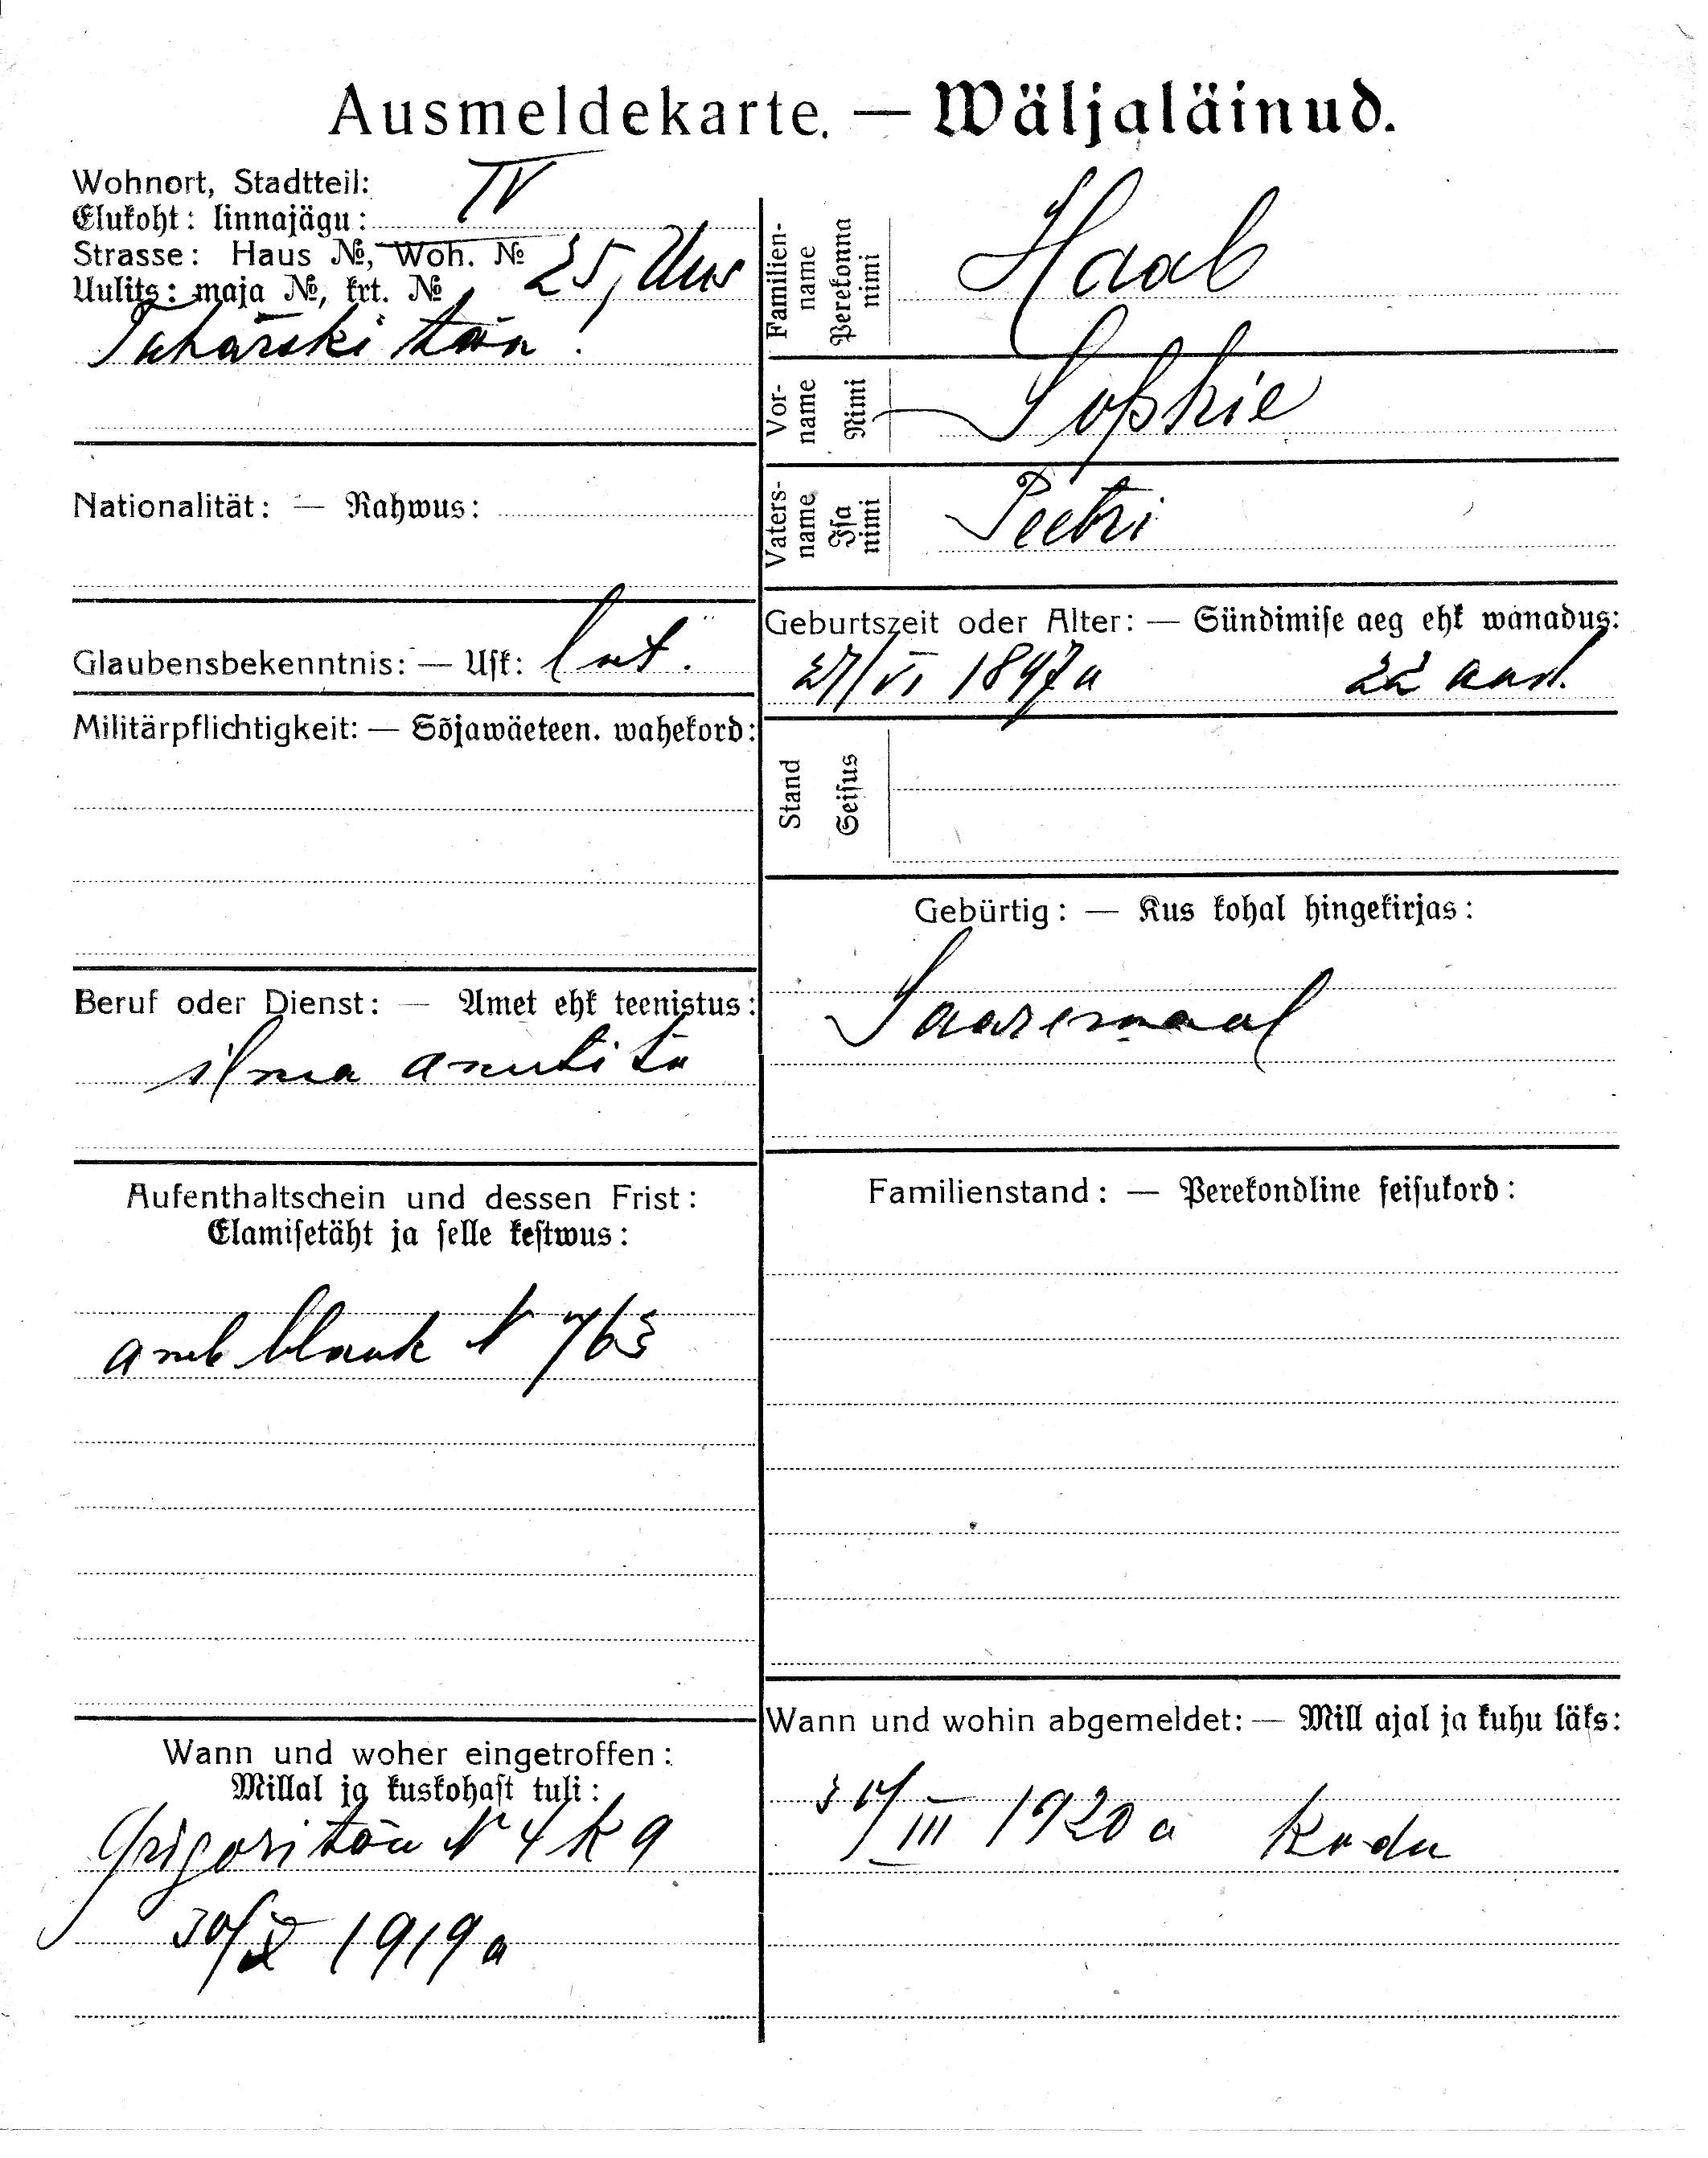 Ausmeldekarte. — Wäljaläinud.
Wohnort, Stadtteil: IV
Elukoht: linnajägu:
Strasse: Haus №, Woh. №
Uulits: maja №, krt. № 25, Uus
Tatarski tän.
Nationalität: — Rahwus:
Glaubensbekenntnis: — Usk: lut.
Militärpflichtigkeit: — Sõjawäeteen. wahekord:
Beruf oder Dienst: — Amet ehk teenistus:
ilma ametita
Aufenthaltschein und dessen Frist:
Elamisetäht ja selle kestwus:
blank N 763
Wann und woher eingetroffen:
Millal ja kuskohast tuli:
Grigori tän N 4 k 9
30/X 1919 a
Familien-name Perekonna nimi Haab
Vor-name Nimi Sophie
Vaters-name Isa nimi Peetri
Geburtszeit oder Alter: — Sündimise aeg ehk wanadus:
27/VI 1897 a 22 aast.
Stand Seisus
Gebürtig: — Kus kohal hingekirjas:
Saaremaal
Familienstand: — Perekondline seisukord:
Wann und wohin abgemeldet: — Mill ajal ja kuhu läks:
III 1920 a Kodu